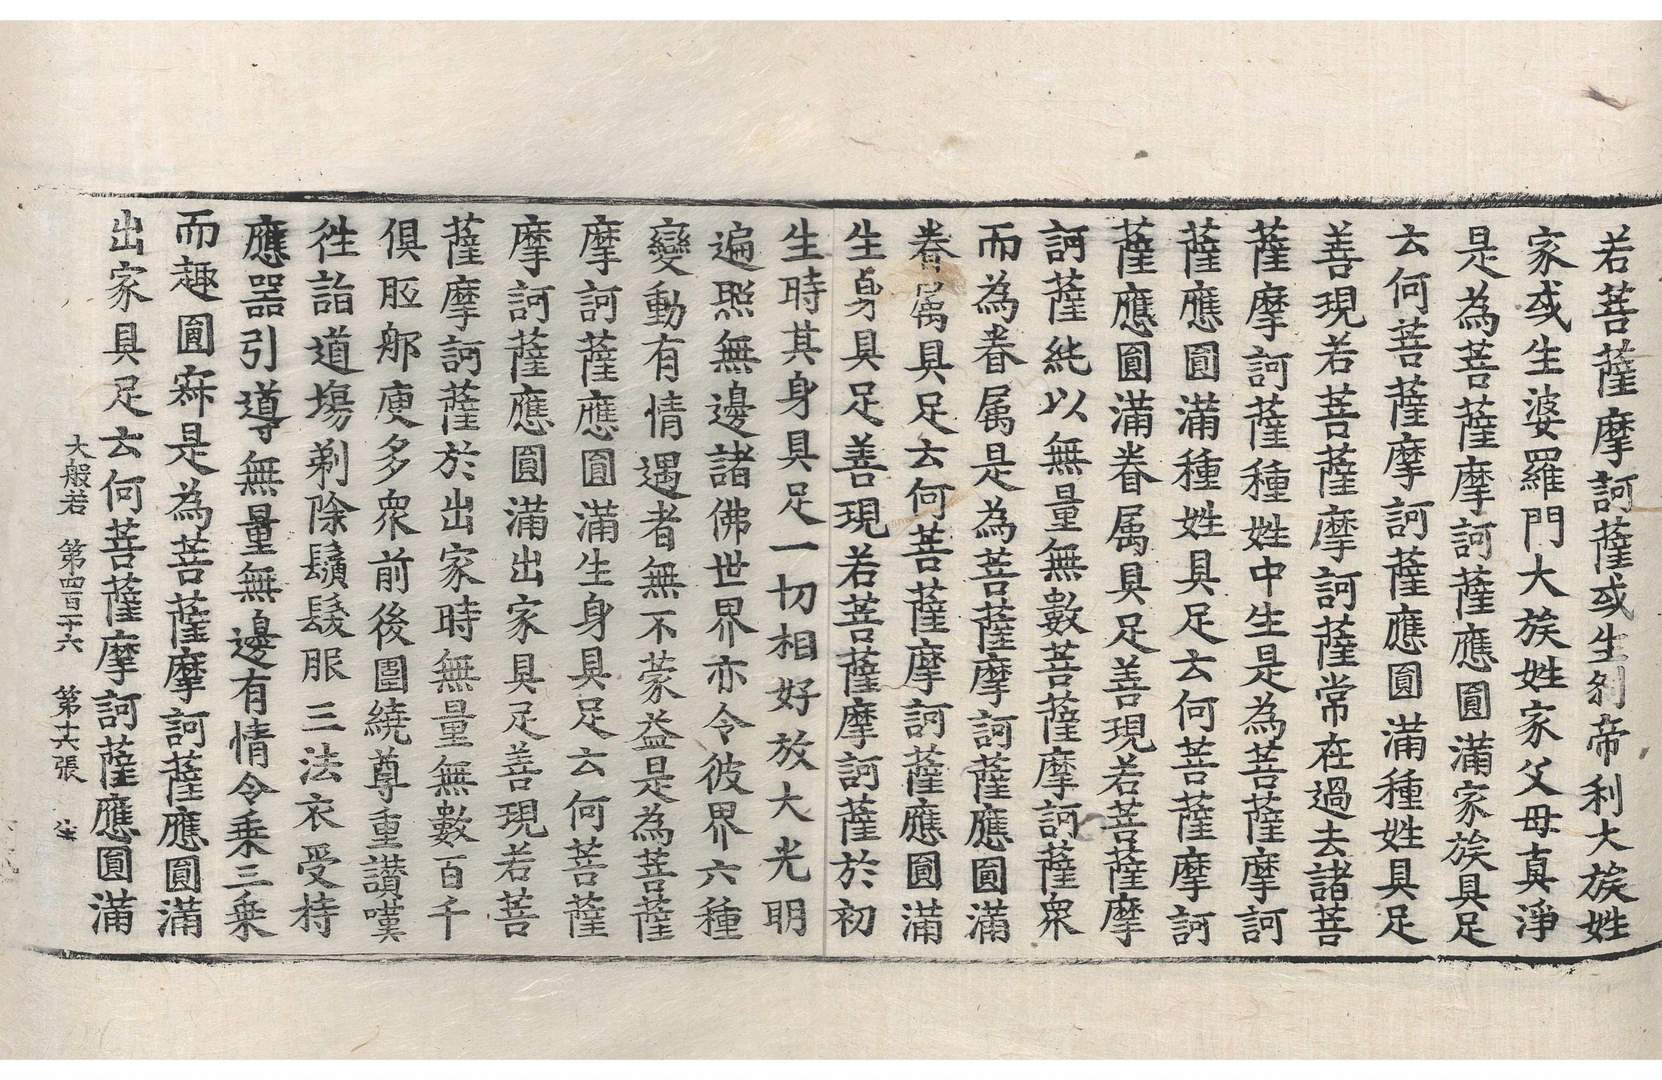 若菩薩摩訶薩或生刹帝利大族姓
家或生婆羅門大族姓家父母真淨
是為菩薩摩訶薩應圓滿家族具足
云何菩薩摩訶薩應圓滿種姓具足
善現若菩薩摩訶薩常在過去諸菩
薩摩訶薩種姓中生是為菩薩摩訶
薩應圓滿種姓具足云何菩薩摩訶
薩應圓滿眷属具足善現若菩薩摩
訶薩純以無量無數菩薩摩訶薩衆
而為眷属是為菩薩摩訶薩應圓滿
眷属具足云何菩薩摩訶薩應圓滿
生身具足善現若菩薩摩訶薩於初
生時其身具足一切相好放大光明
遍照無邊諸佛世界亦令彼界六種
變動有情遇者無不蒙益是為菩薩
摩訶薩應圓滿生身具足云何菩薩
摩訶薩應圓滿出家具足善現若菩
薩摩訶薩於出家時無量無數百千
俱胝那庾多衆前後圍繞尊重讃嘆
徃詣道場剃除鬚髮服三法衣受持
應器引導無量無邊有情令乗三乗
而趣圓寂是為菩薩摩訶薩應圓滿
出家具足云何菩薩摩訶薩應圓滿
大般若 第四百十六 第十六張